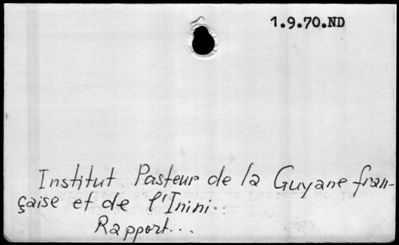 1.9.70.ND
Institut Pasteur de la Guyane fran-
çaise et de l'Inini..
Rapport...